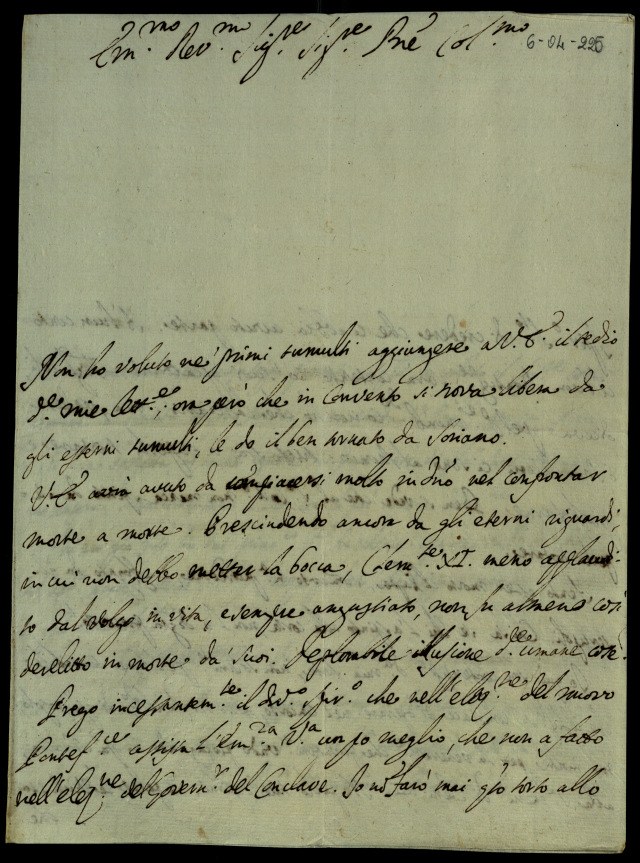 Em.mo Rev.mo Sig.re Sig.re Pne Col.mo
6-04-225
Non ho voluto ne' primi tumulti aggiungere a V.E. il tedio
d.e mie lett.e; ora però che in Convento si trova libera da
gli esterni tumulti, le do il ben tornato da Soriano.
V.E. avrà avuto da compiacersi molto in Dño nel confrontar
morte a morte. Prescindendo ancora da gli eterni riguardi,
in cui non debbo metter la bocca, Clem.te XI. meno applaudi-
to dal volgo in vita, e sempre angustiato, non fu almeno così
derelitto in morte da' suoi. Deplorabile illusione d.e umane cose.
Prego incessantem.te il div.o Spir.o che nell'elez.ne del nuovo
Pontef.ce assista l'Em.za V.a un po meglio, che non a fatto
nell'elez.ne del Govern.r del Conclave. Io nõ farò mai q.to torto allo